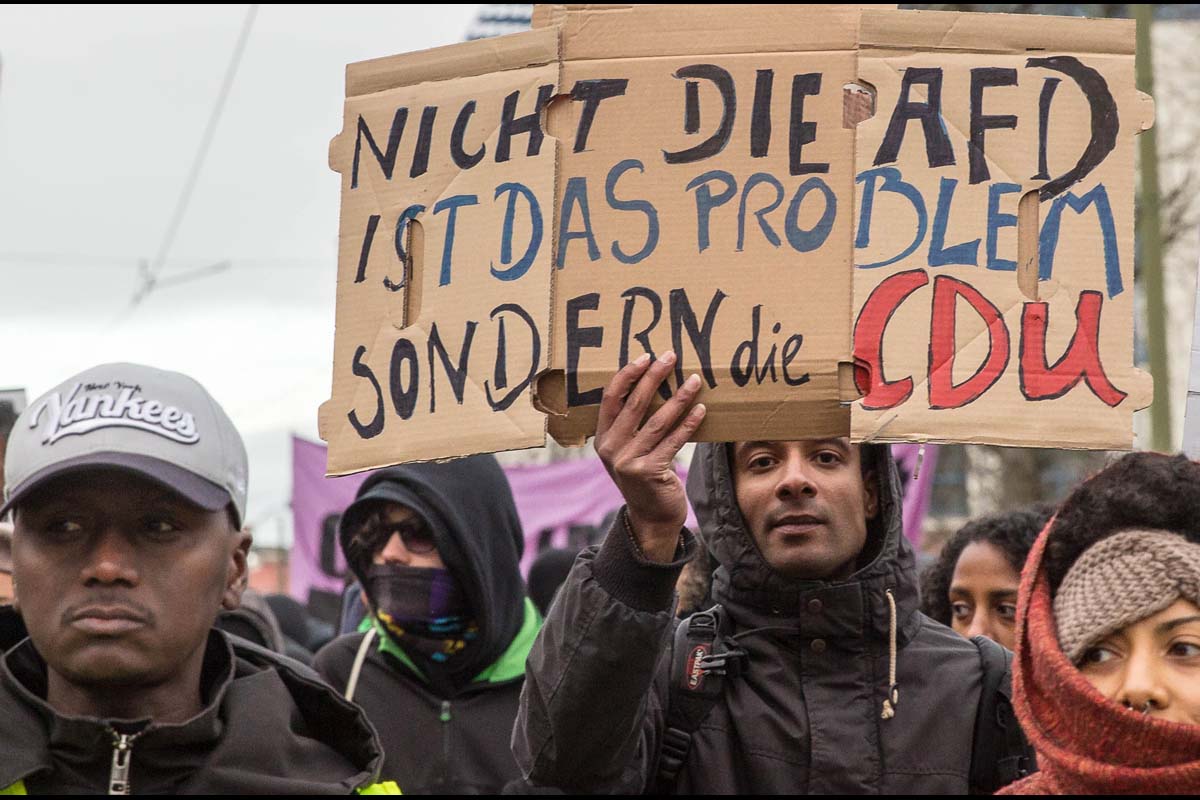 NICHT DIE AFD
IST DAS PROBLEM
SONDERN die CDU
New York
Yankees
EASTPAK